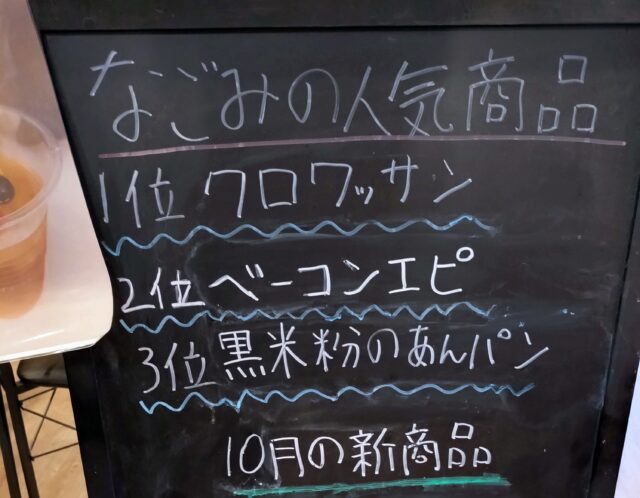 なごみの人気商品
1位 クロワッサン
2位 ベーコンエピ
3位 黒米粉のあんパン
10月の新商品